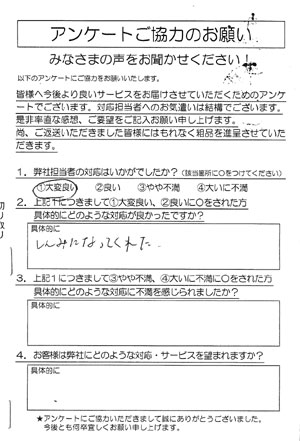 アンケートご協力のお願い
みなさまの声をお聞かせください！
以下のアンケートにご協力をお願いいたします。
皆様へ今後より良いサービスをお届けさせていただくためのアンケ
ートでございます。対応担当者へのお気遣いは結構でございます。
是非率直な感想、ご要望をご記入お願い申し上げます。
尚、ご返送いただきました皆様にはもれなく粗品を進呈させていた
だきます。
1．弊社担当者の対応はいかがでしたか？（該当箇所に○をつけてください）
①大変良い　②良い　③やや不満　④大いに不満
2．上記1につきまして①大変良い、②良いに○をされた方
具体的にどのような対応が良かったですか？
具体的に
しんみになってくれた
3．上記1につきまして③やや不満、④大いに不満に○をされた方
具体的にどのような対応に不満を感じられましたか？
具体的に
4．お客様は弊社にどのような対応・サービスを望まれますか？
具体的に
★アンケートにご協力いただきまして誠にありがとうございました。
今後とも何卒宜しくお願い申し上げます。
切り取り